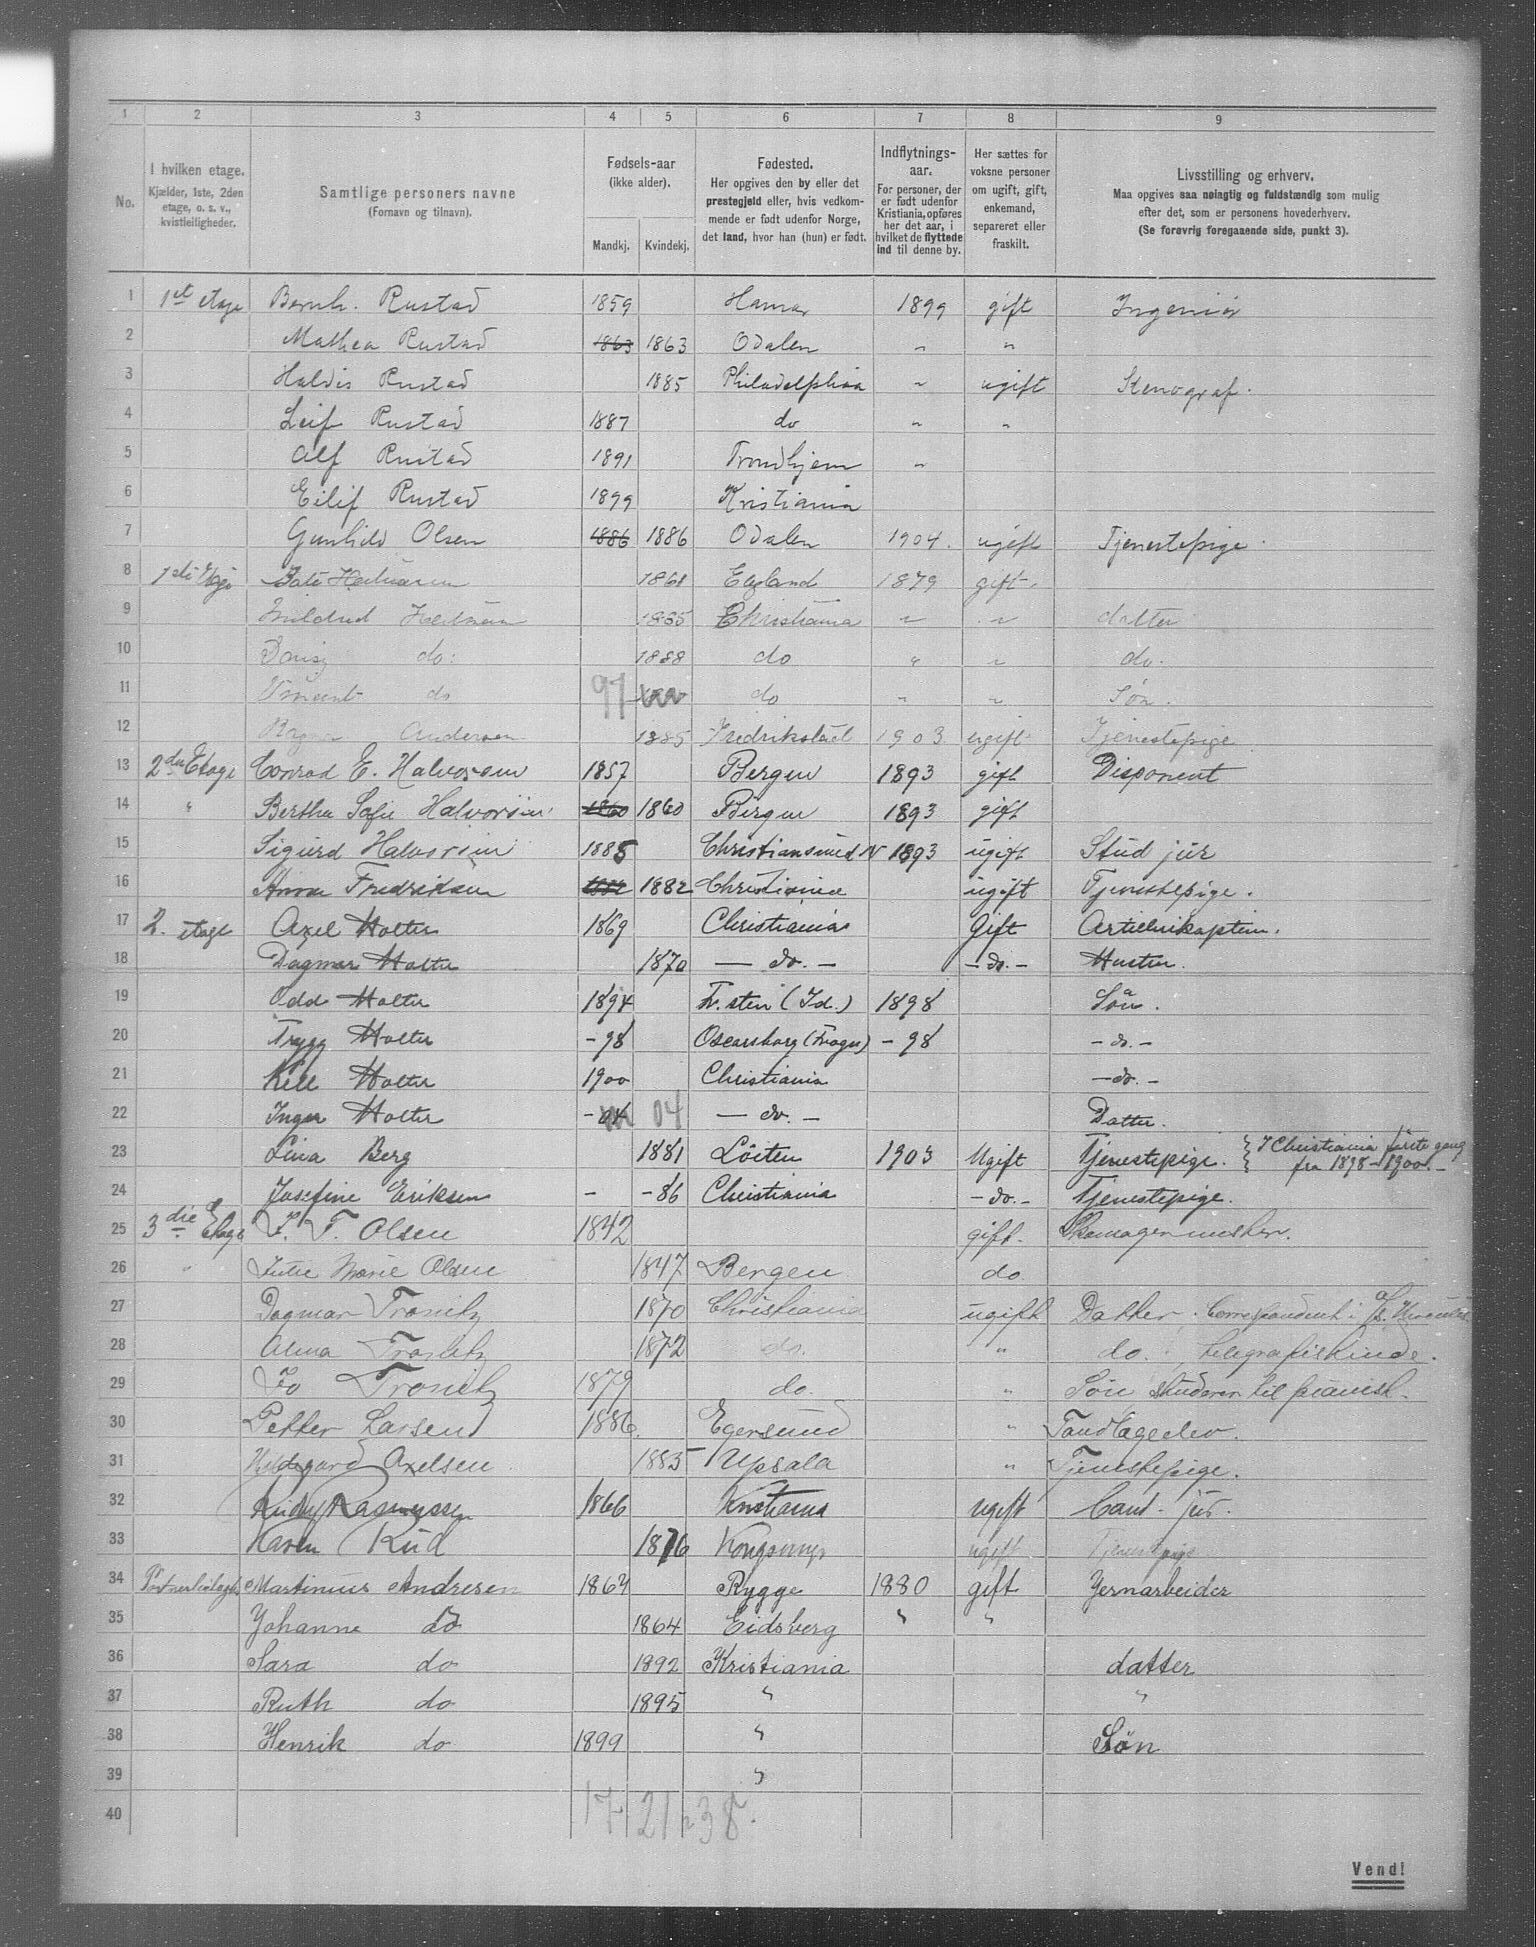 1 2 3 4 5 6 7 8 9
No.
I hvilken etage.
Kjælder, 1ste, 2den
etage, o. s. v.,
kvistleiligheder.
Samtlige personers navne
(Fornavn og tilnavn).
Fødsels-aar
(ikke alder).
Mandkj. Kvindekj.
Fødested.
Her opgives den by eller det
prestegjeld eller, hvis vedkom-
mende er født udenfor Norge,
det land, hvor han (hun) er født.
Indflytnings-
aar.
For personer, der
er født udenfor
Kristiania, opføres
her det aar, i
hvilket de flyttede
ind til denne by.
Her sættes for
voksne personer
om ugift, gift,
enkemand,
separeret eller
fraskilt.
Livsstilling og erhverv.
Maa opgives saa nøiagtig og fuldstændig som mulig
efter det, som er personens hovederhverv.
(Se forøvrig foregaaende side, punkt 3).
1 1st etage Bernh. Rustad 1859 Hamar 1899 gift Ingeniør
2 Mathea Rustad 1863 1863 Odalen " "
3 Haldis Rustad 1885 Philadelphia " ugift Stenograf.
4 Leif Rustad 1887 do " "
5 Alf Rustad 1891 Trondhjem "
6 Eilif Rustad 1899 Kristiania
7 Gunhild Olsen 1886 1886 Odalen 1904. ugift Tjenestepige.
8 1ste Etage 1861 England 1879 gift.
9 Mildred 1885 Christiania " " datter
10 Daisy do. 1888 do " " do.
11 Vincent do 97 do " " Søn.
12 Ragna Andersen 1885 Fredrikstad 1903 ugift Tjenestepige
13 2den Etage Conrad E. Halvorsen 1857 Bergen 1893 gift Disponent
14 " Bertha Sofie Halvorsen 1860 1860 Bergen 1893 gift
15 Sigurd Halvorsen 1885 Christiansund N 1893 ugift Stud jur
16 Anna Fredriksen 1882 1882 Christiania ugift Tjenestepige.
17 2. etage Axel Holter 1869 Christiania Gift Artillerikaptein.
18 Dagmar Holter 1870 — do. — - do. - Hustru.
19 Odd Holter 1894 Fr. sten (Id.) 1898 Søn.
20 Trygg Holter - 98 Oscarsborg (Frogn) - 98 - do. -
21 Kell Holter 1900 Christiania - do. -
22 Inger Holter - 04 04 — do. — Datter.
23 Lina Berg 1881 Löiten 1903 Ugift Tjenestepige. { I Christiania første gang
fra 1898 - 1900. -
24 Josefine Eriksen - - 86 Christiania - do. - Tjenestepige.
25 3die Etage P. T. Olsen 1842 gift. Skomagermester.
26 " Julie Marie Olsen 1847 Bergen do
27 Dagmar Tronitz 1870 Christiania ugift Datter, Correspondent i
28 Alma Tronitz 1872 do. " do. , telegrafistinde.
29 Tronitz 1879 do. " Søn, studerer til pianist.
30 Petter Larsen 1886. Egersund " Tandlægeelev.
31 Hildegard Axelsen 1885 Upsala " Tjenestepige.
32 Rasmussen 1866 Kristiania ugift Cand. jur.
33 Karen 1876 Kongsvinger ugift Tjenestepige
34 Martinius Andresen 1864 Rygge 1880 gift Jernarbeider
35 Johanne do 1864 Eidsberg " "
36 Sara do 1892 Kristiania datter
37 Ruth do 1895 " "
38 Henrik do 1899 " Søn
39 "
40 17 21 = 38.
Vend!